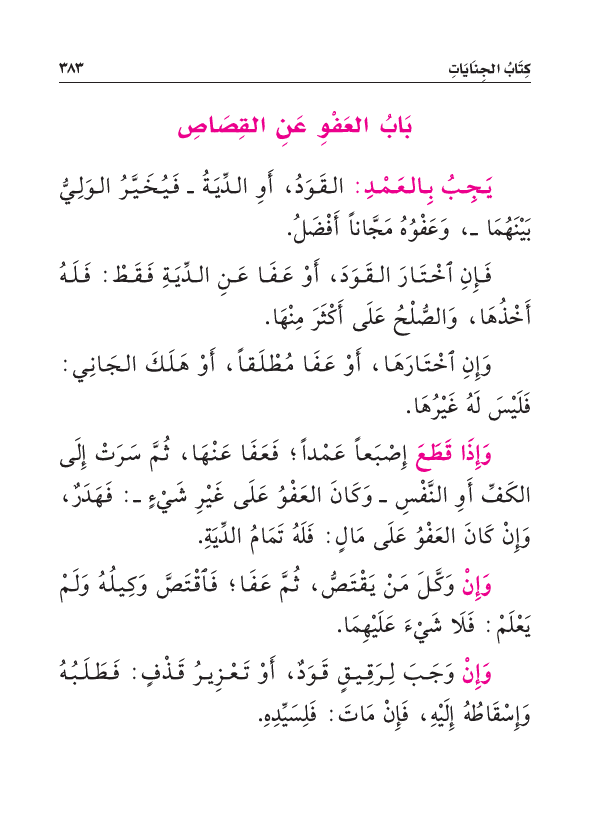 كِتَابُ الجِنَايَاتِ ٣٨٣
بَابُ العَفْوِ عَنِ القِصَاصِ
يَجِبُ بِالعَمْدِ: القَوَدُ، أَوِ الدِّيَةُ ـ فَيُخَيَّرُ الوَلِيُّ
بَيْنَهُمَا ـ، وَعَفْوُهُ مَجَّاناً أَفْضَلُ.
فَإِنِ ٱخْتَارَ القَوَدَ، أَوْ عَفَا عَنِ الدِّيَةِ فَقَطْ: فَلَهُ
أَخْذُهَا، وَالصُّلْحُ عَلَى أَكْثَرَ مِنْهَا.
وَإِنِ ٱخْتَارَهَا، أَوْ عَفَا مُطْلَقاً، أَوْ هَلَكَ الجَانِي:
فَلَيْسَ لَهُ غَيْرُهَا.
وَإِذَا قَطَعَ إِصْبَعاً عَمْداً؛ فَعَفَا عَنْهَا، ثُمَّ سَرَتْ إِلَى
الكَفِّ أَوِ النَّفْسِ ـ وَكَانَ العَفْوُ عَلَى غَيْرِ شَيْءٍ ـ: فَهَدَرٌ،
وَإِنْ كَانَ العَفْوُ عَلَى مَالٍ: فَلَهُ تَمَامُ الدِّيَةِ.
وَإِنْ وَكَّلَ مَنْ يَقْتَصُّ، ثُمَّ عَفَا؛ فَٱقْتَصَّ وَكِيلُهُ وَلَمْ
يَعْلَمْ: فَلَا شَيْءَ عَلَيْهِمَا.
وَإِنْ وَجَبَ لِرَقِيقٍ قَوَدٌ، أَوْ تَعْزِيرُ قَذْفٍ: فَطَلَبُهُ
وَإِسْقَاطُهُ إِلَيْهِ، فَإِنْ مَاتَ: فَلِسَيِّدِهِ.